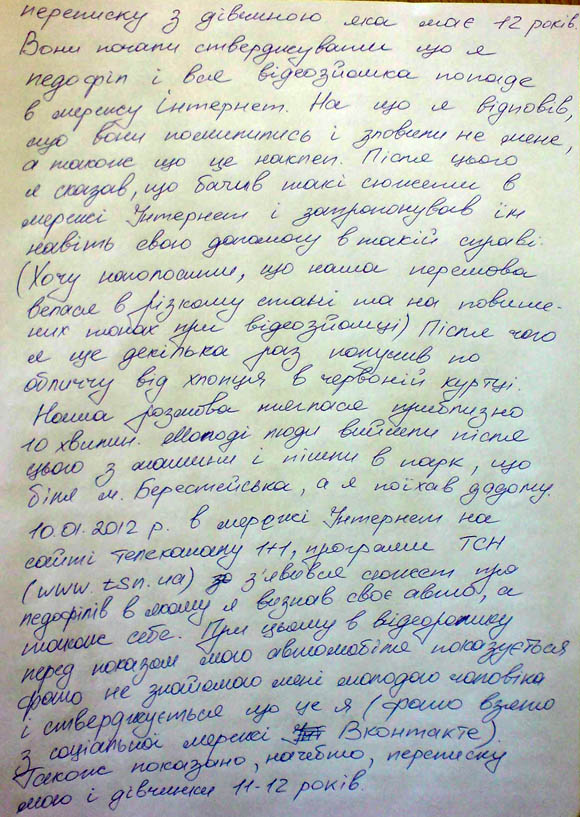 переписку з дівчиною яка має 12 років.
Вони почали стверджувати що я
педофіл і вся відеозйомка попаде
в мережу інтернет. На що я відповів,
що вони помилились і зловили не мене,
а також що це наклеп. Після цього
я сказав, що бачив такі сюжети в
мережі Інтернет і запропонував їм
навіть свою допомогу в такій справі.
(Хочу наголосити, що наша перемова
велася в різкому стані та на повише-
них тонах при відеозйомці) Після чого
я ще декілька раз получив по
обличчу від хлопця в червоній куртці.
Наша розмова тяглася приблизно
10 хвилин. Молоді люди вийшли після
цього з машини і пішли в парк, що
біля м. Берестейська, а я поїхав додому.
10.01.2012 р. в мережі Інтернет на
сайті телеканалу 1+1, програми ТСН
(www.tsn.ua) з'явився сюжет про
педофілів в якому я визнав своє авто, а
також себе. При цьому в відеоролику
перед показом мого автомобіля показується
фото не знайомого мені молодого чоловіка
і стверджується що це я (фото взято
з соціальної мережі Вконтакте).
Також показано, начебто, переписку
мою і дівчинки 11-12 років.